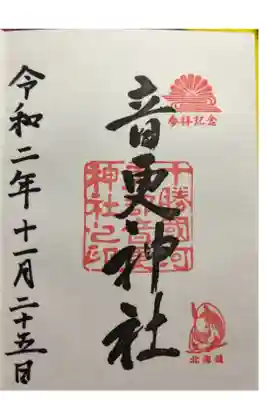 参拝記念
音更神社
十勝國河
東郡音更
神社之印
北海道
令和二年十一月二十五日